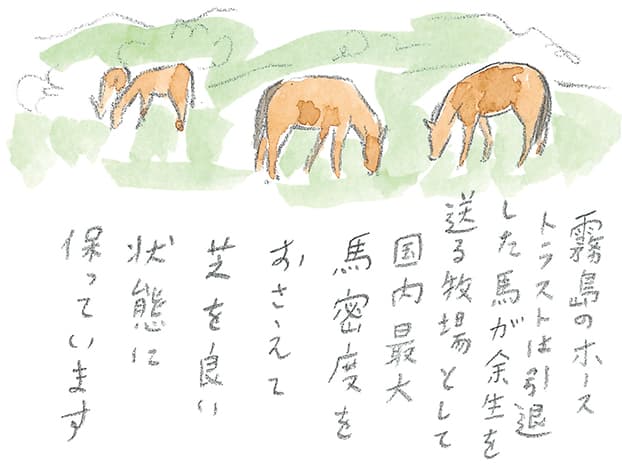 霧島のホース
トラストは引退
した馬が余生を
送る牧場として
国内最大
馬密度を
おさえて
芝を良い
状態に
保っています